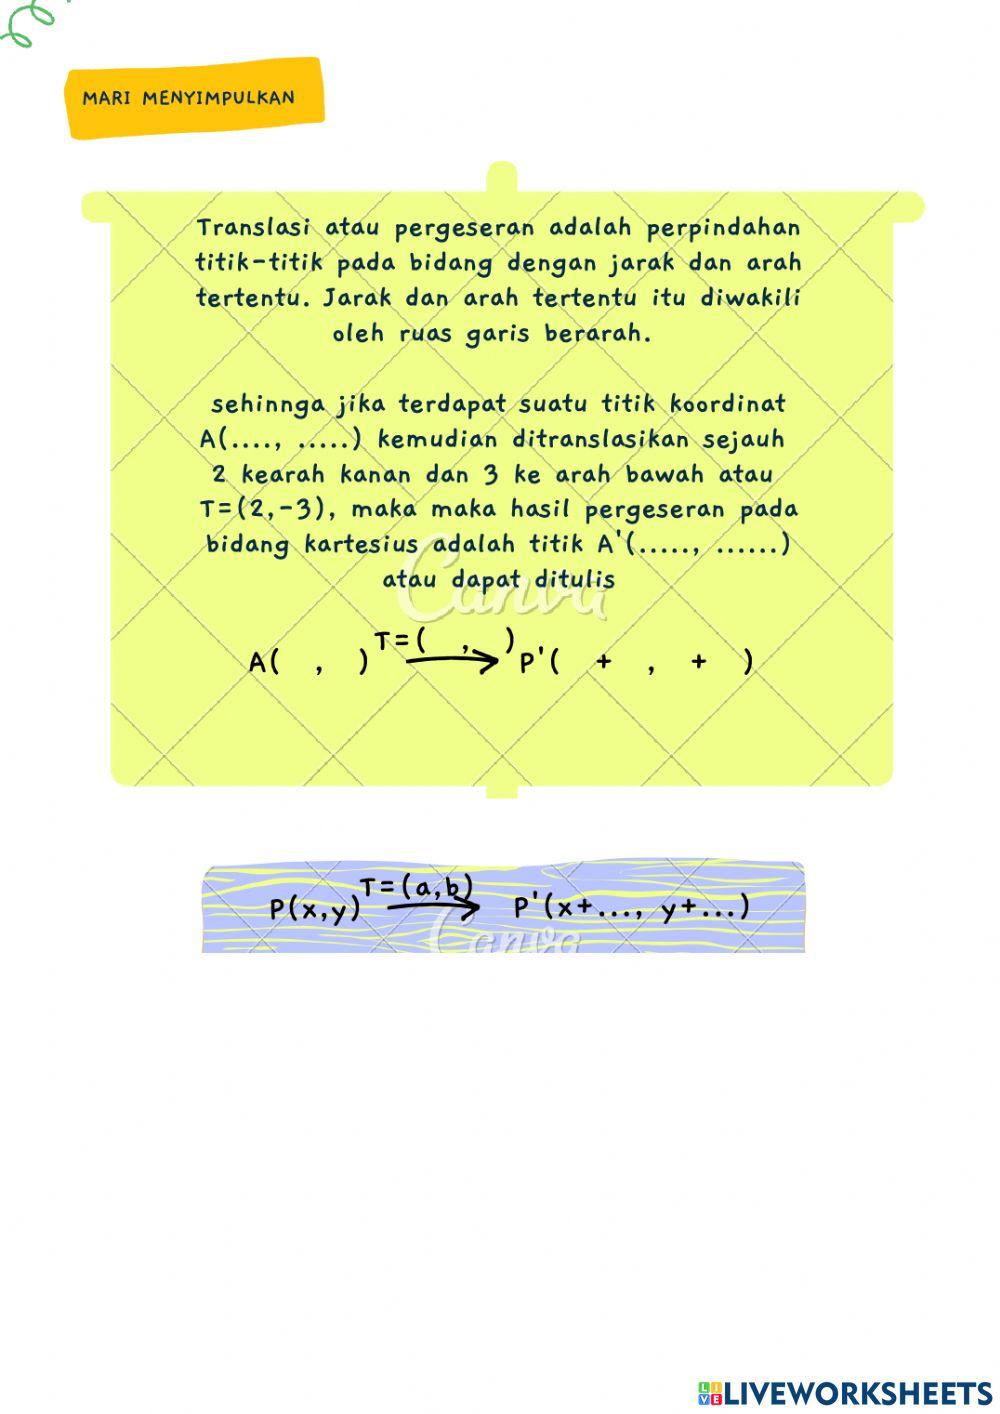 MARI MENYIMPULKAN
Translasi atau pergeseran adalah perpindahan
titik-titik pada bidang dengan jarak dan arah
tertentu. Jarak dan arah tertentu itu diwakili
oleh ruas garis berarah.
sehinnga jika terdapat suatu titik koordinat
A(...., .....) kemudian ditranslasikan sejauh
2 kearah kanan dan 3 ke arah bawah atau
T=(2,-3), maka maka hasil pergeseran pada
bidang kartesius adalah titik A'(....., ......)
atau dapat ditulis
Canva
A( , ) T=( , ) P'( + , + )
P(x,y) T=(a,b) P'(x+..., y+...)
Canva
LIVE LIVEWORKSHEETS